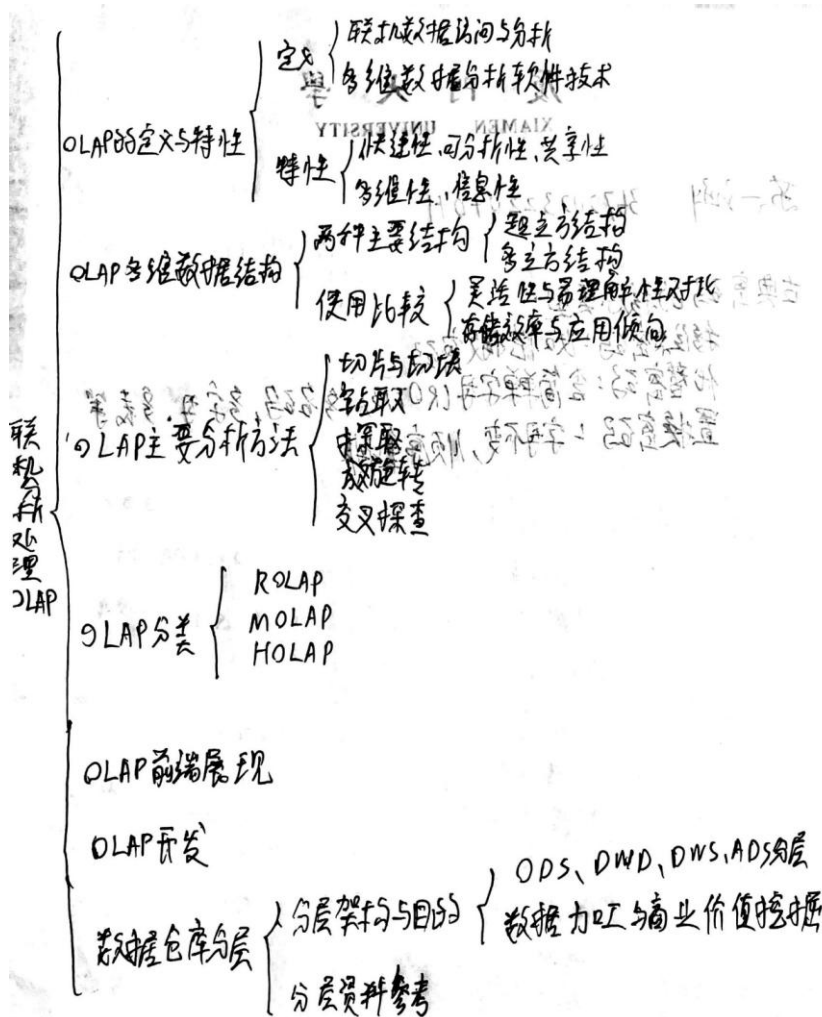 联机分析处理OLAP
OLAP的定义与特性
定义
联机数据访问与分析
多维数据分析软件技术
特性
快速性、可分析性、共享性
多维性、信息性
OLAP多维数据结构
两种主要结构
超立方结构
多立方结构
使用比较
灵活性与易理解性对比
存储效率与应用倾向
OLAP主要分析方法
切片与切块
钻取
旋转
交叉探查
OLAP分类
ROLAP
MOLAP
HOLAP
OLAP前端展现
OLAP开发
数据仓库分层
分层架构与目的
ODS、DWD、DWS、ADS分层
数据加工与商业价值挖掘
分层资料参考
XIAMEN UNIVERSITY